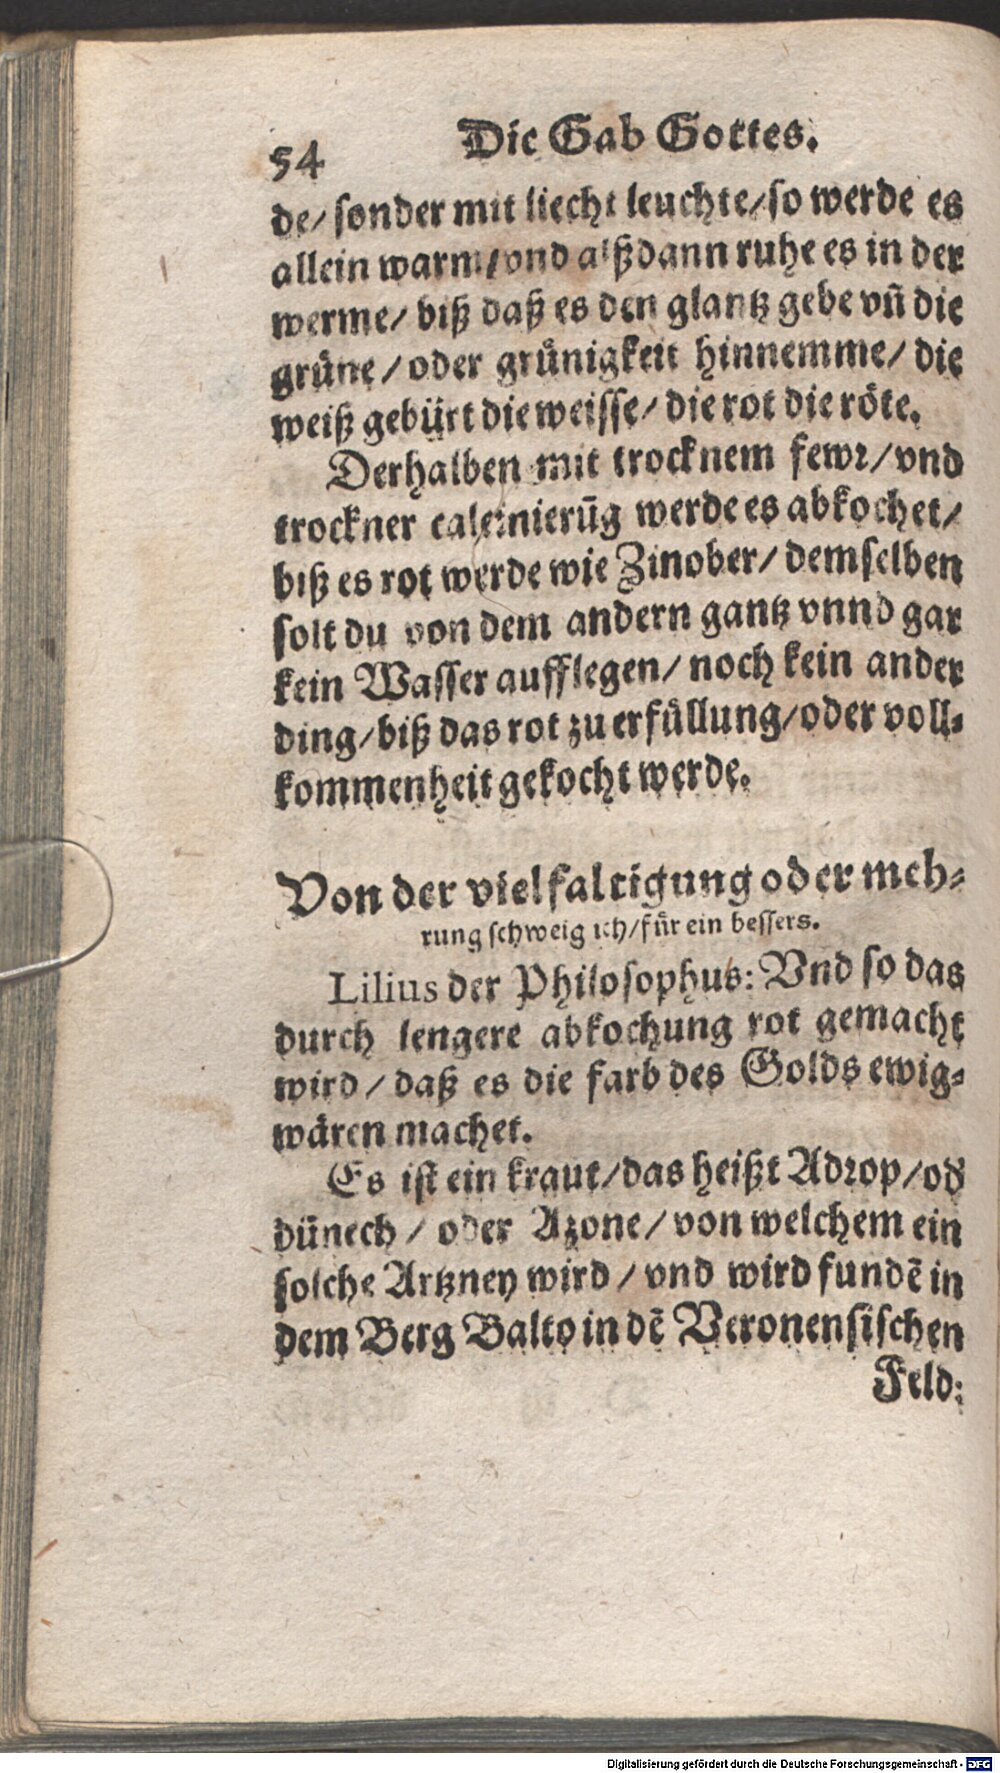 54 Die Gab Gottes.
de/ sonder mit liecht leuchte/so werde es
allein warm/vnd alßdann ruhe es in der
werme/ biß daß es den glantz gebe vn̄ die
grüne/oder grünigkeit hinnemme/ die
weiß gebürt die weisse/ die rot die röte.
Derhalben mit trocknem fewr/vnd
trockner calcinierūg werde es abkochet/
biß es rot werde wie Zinober/ demselben
solt du von dem andern gantz vnnd gar
kein Wasser aufflegen/ noch kein ander
ding/biß das rot zu erfüllung/oder voll-
kommenheit gekocht werde.
Von der vielfaltigung oder meh-
rung schweig ich/für ein bessers.
Lilius der Philosophus: Vnd so das
durch lengere abkochung rot gemacht
wird/ daß es die farb des Golds ewig-
wären machet.
Es ist ein kraut/das heißt Adrop/od̄
dünech/ oder Azone/von welchem ein
solche Artzney wird/ vnd wird fundē in
dem Berg Balto in dē Veronensischen
Feld:
Digitalisierung gefördert durch die Deutsche Forschungsgemeinschaft - DFG